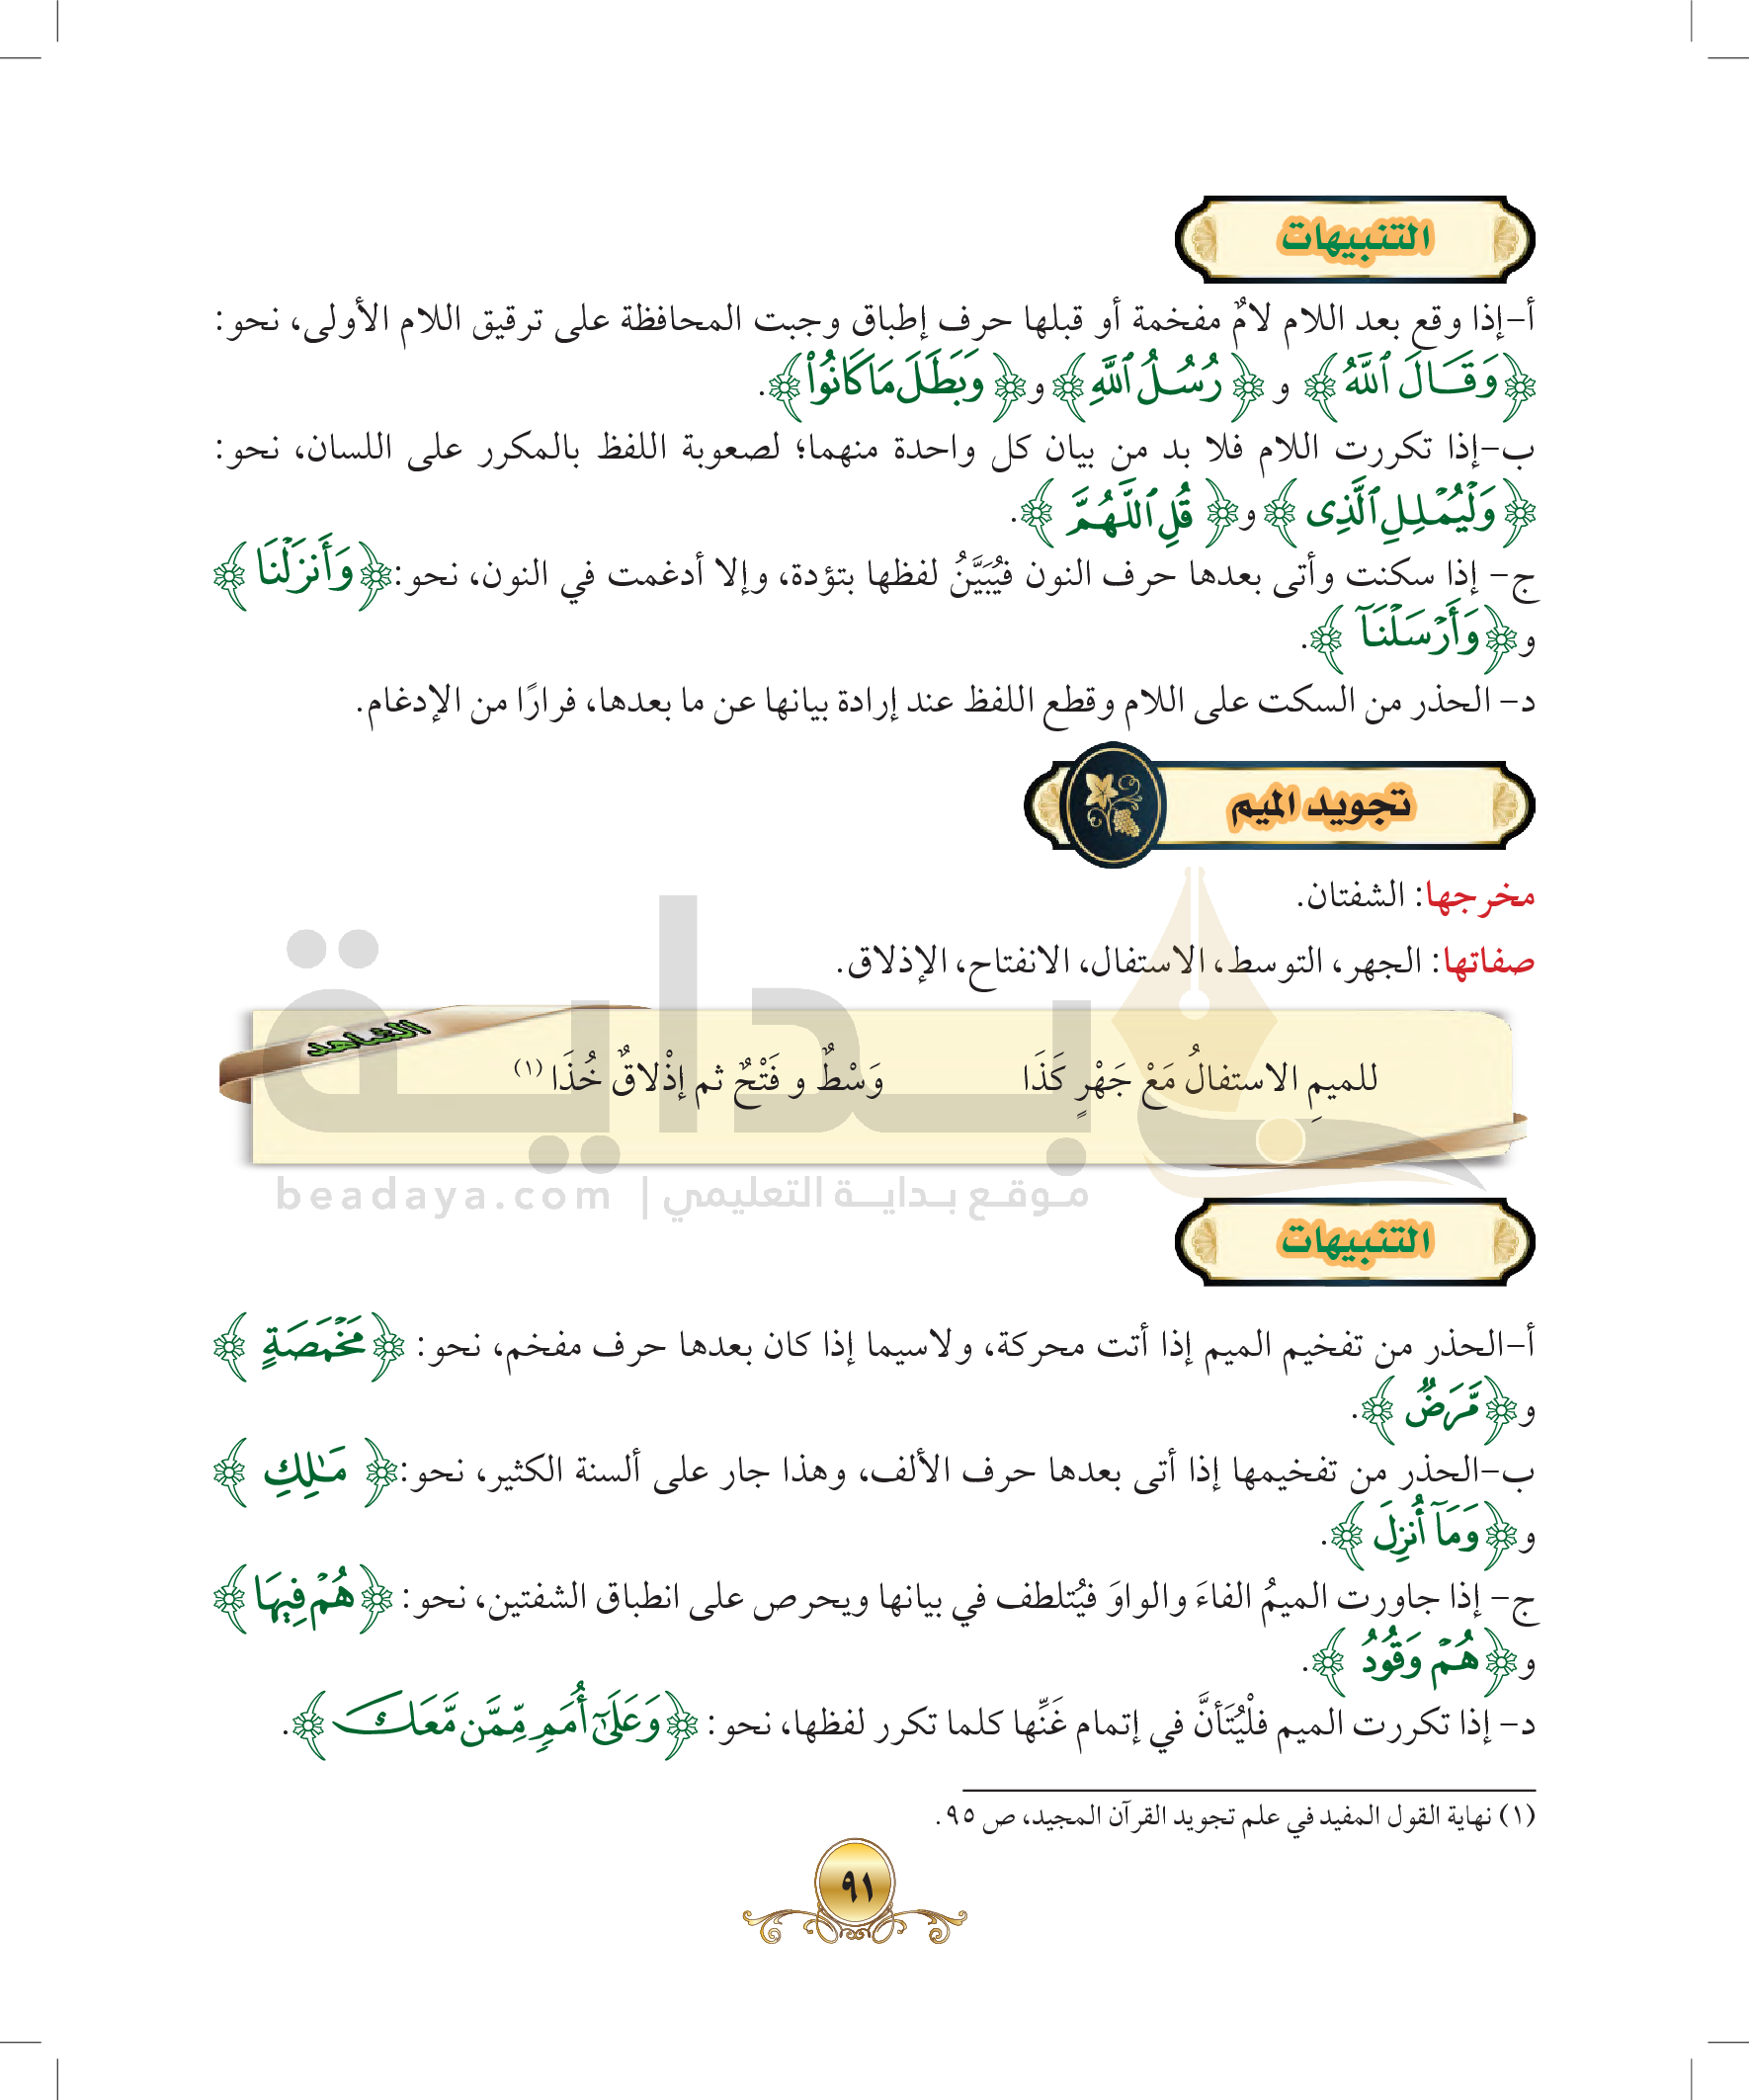 التنبيهات
أ-إذا وقع بعد اللام لامٌ مفخمة أو قبلها حرف إطباق وجبت المحافظة على ترقيق اللام الأولى، نحو:
﴿وَقَالَ ٱللَّهُ﴾ و ﴿رُسُلُ ٱللَّهِ﴾ و﴿وَبَطَلَ مَا كَانُوا۟﴾.
ب-إذا تكررت اللام فلا بد من بيان كل واحدة منهما؛ لصعوبة اللفظ بالمكرر على اللسان، نحو:
﴿وَلۡيُمۡلِلِ ٱلَّذِى﴾ و﴿قُلِ ٱللَّهُمَّ﴾.
ج- إذا سكنت وأتى بعدها حرف النون فيُبَيَّنُ لفظها بتؤدة، وإلا أدغمت في النون، نحو:﴿وَأَنزَلۡنَا﴾
و﴿وَأَرۡسَلۡنَآ﴾.
د- الحذر من السكت على اللام وقطع اللفظ عند إرادة بيانها عن ما بعدها، فرارًا من الإدغام.
تجويد الميم
مخرجها: الشفتان.
صفاتها: الجهر، التوسط، الاستفال، الانفتاح، الإذلاق.
الشاهد
للميمِ الاستفالُ مَعْ جَهْرٍ كَذَا وَسْطٌ و فَتْحٌ ثم إذْلاقٌ خُذَا (١)
بداية
موقع بداية التعليمي | beadaya.com
التنبيهات
أ-الحذر من تفخيم الميم إذا أتت محركة، ولاسيما إذا كان بعدها حرف مفخم، نحو: ﴿مَخۡمَصَةٍ﴾
و﴿مَّرَضٌ﴾.
ب-الحذر من تفخيمها إذا أتى بعدها حرف الألف، وهذا جار على ألسنة الكثير، نحو:﴿مَـٰلِكِ﴾
و﴿وَمَآ أُنزِلَ﴾.
ج- إذا جاورت الميمُ الفاءَ والواوَ فيُتلطف في بيانها ويحرص على انطباق الشفتين، نحو: ﴿هُمۡ فِيهَا﴾
و﴿هُمۡ وَقُودُ﴾.
د- إذا تكررت الميم فلْيُتَأنَّ في إتمام غَنِّها كلما تكرر لفظها، نحو: ﴿وَعَلَىٰٓ أُمَمٍ مِّمَّن مَّعَكَ﴾.
(١) نهاية القول المفيد في علم تجويد القرآن المجيد، ص ٩٥.
٩١